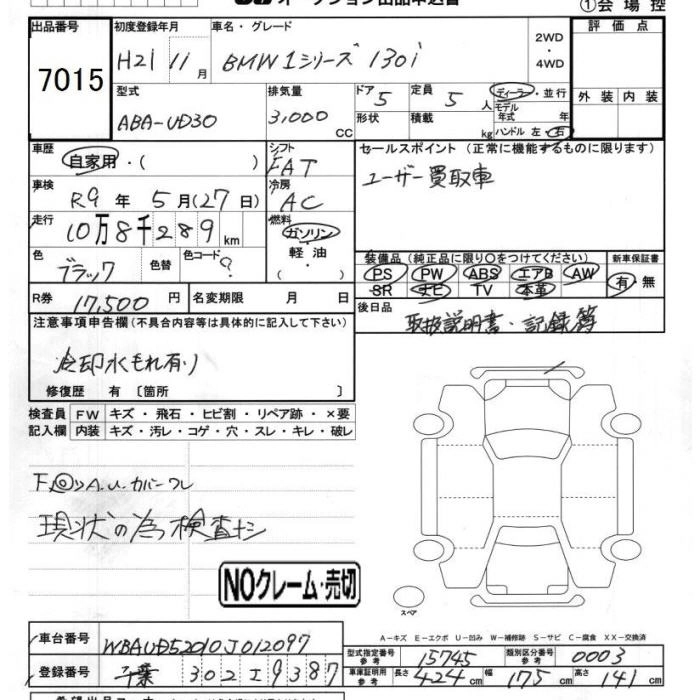 オークション出品申込書 ①会場控
出品番号 初度登録年月 車名・グレード 2WD 評価点
7015 H21 11月 BMW 1シリーズ 130i ・4WD
型式 排気量 ドア 定員 ディーラー・並行 外装 内装
ABA-UD30 3,000 CC 5 5人 モデル年式 年
形状 積載 kg ハンドル 左・右
車歴 シフト セールスポイント (正常に機能するものに限ります)
自家用・( ) FAT ユーザー買取車
車検 冷房
R9年 5月(27日) AC
走行 燃料
10万8千289km ガソリン
色 色替 色コード 軽油 装備品 (純正品に限り○をつけてください) 新車保証書
ブラック ? ・( ) PS PW ABS エアB AW 有・無
SR ナビ TV 本革
R券 17,500円 名変期限 月 日 後日品
取扱説明書・記録簿
注意事項申告欄(不具合内容等は具体的に記入して下さい)
冷却水もれ有り
修復歴 有 〔箇所 〕
検査員 FW キズ・飛石・ヒビ割・リペア跡・×要
記入欄 内装 キズ・汚レ・コゲ・穴・スレ・キレ・破レ
現状の為検査ナシ
NOクレーム・売切
スペア
A-キズ E-エクボ U-凹み W-補修跡 S-サビ C-腐食 XX-交換済
車台番号 WBAUD52010J012097 型式指定番号 参考 15745 類別区分番号 参考 0003
登録番号 千葉 302 そ 9387 車庫証明用 参考 長さ 424cm 幅 175cm 高さ 141cm